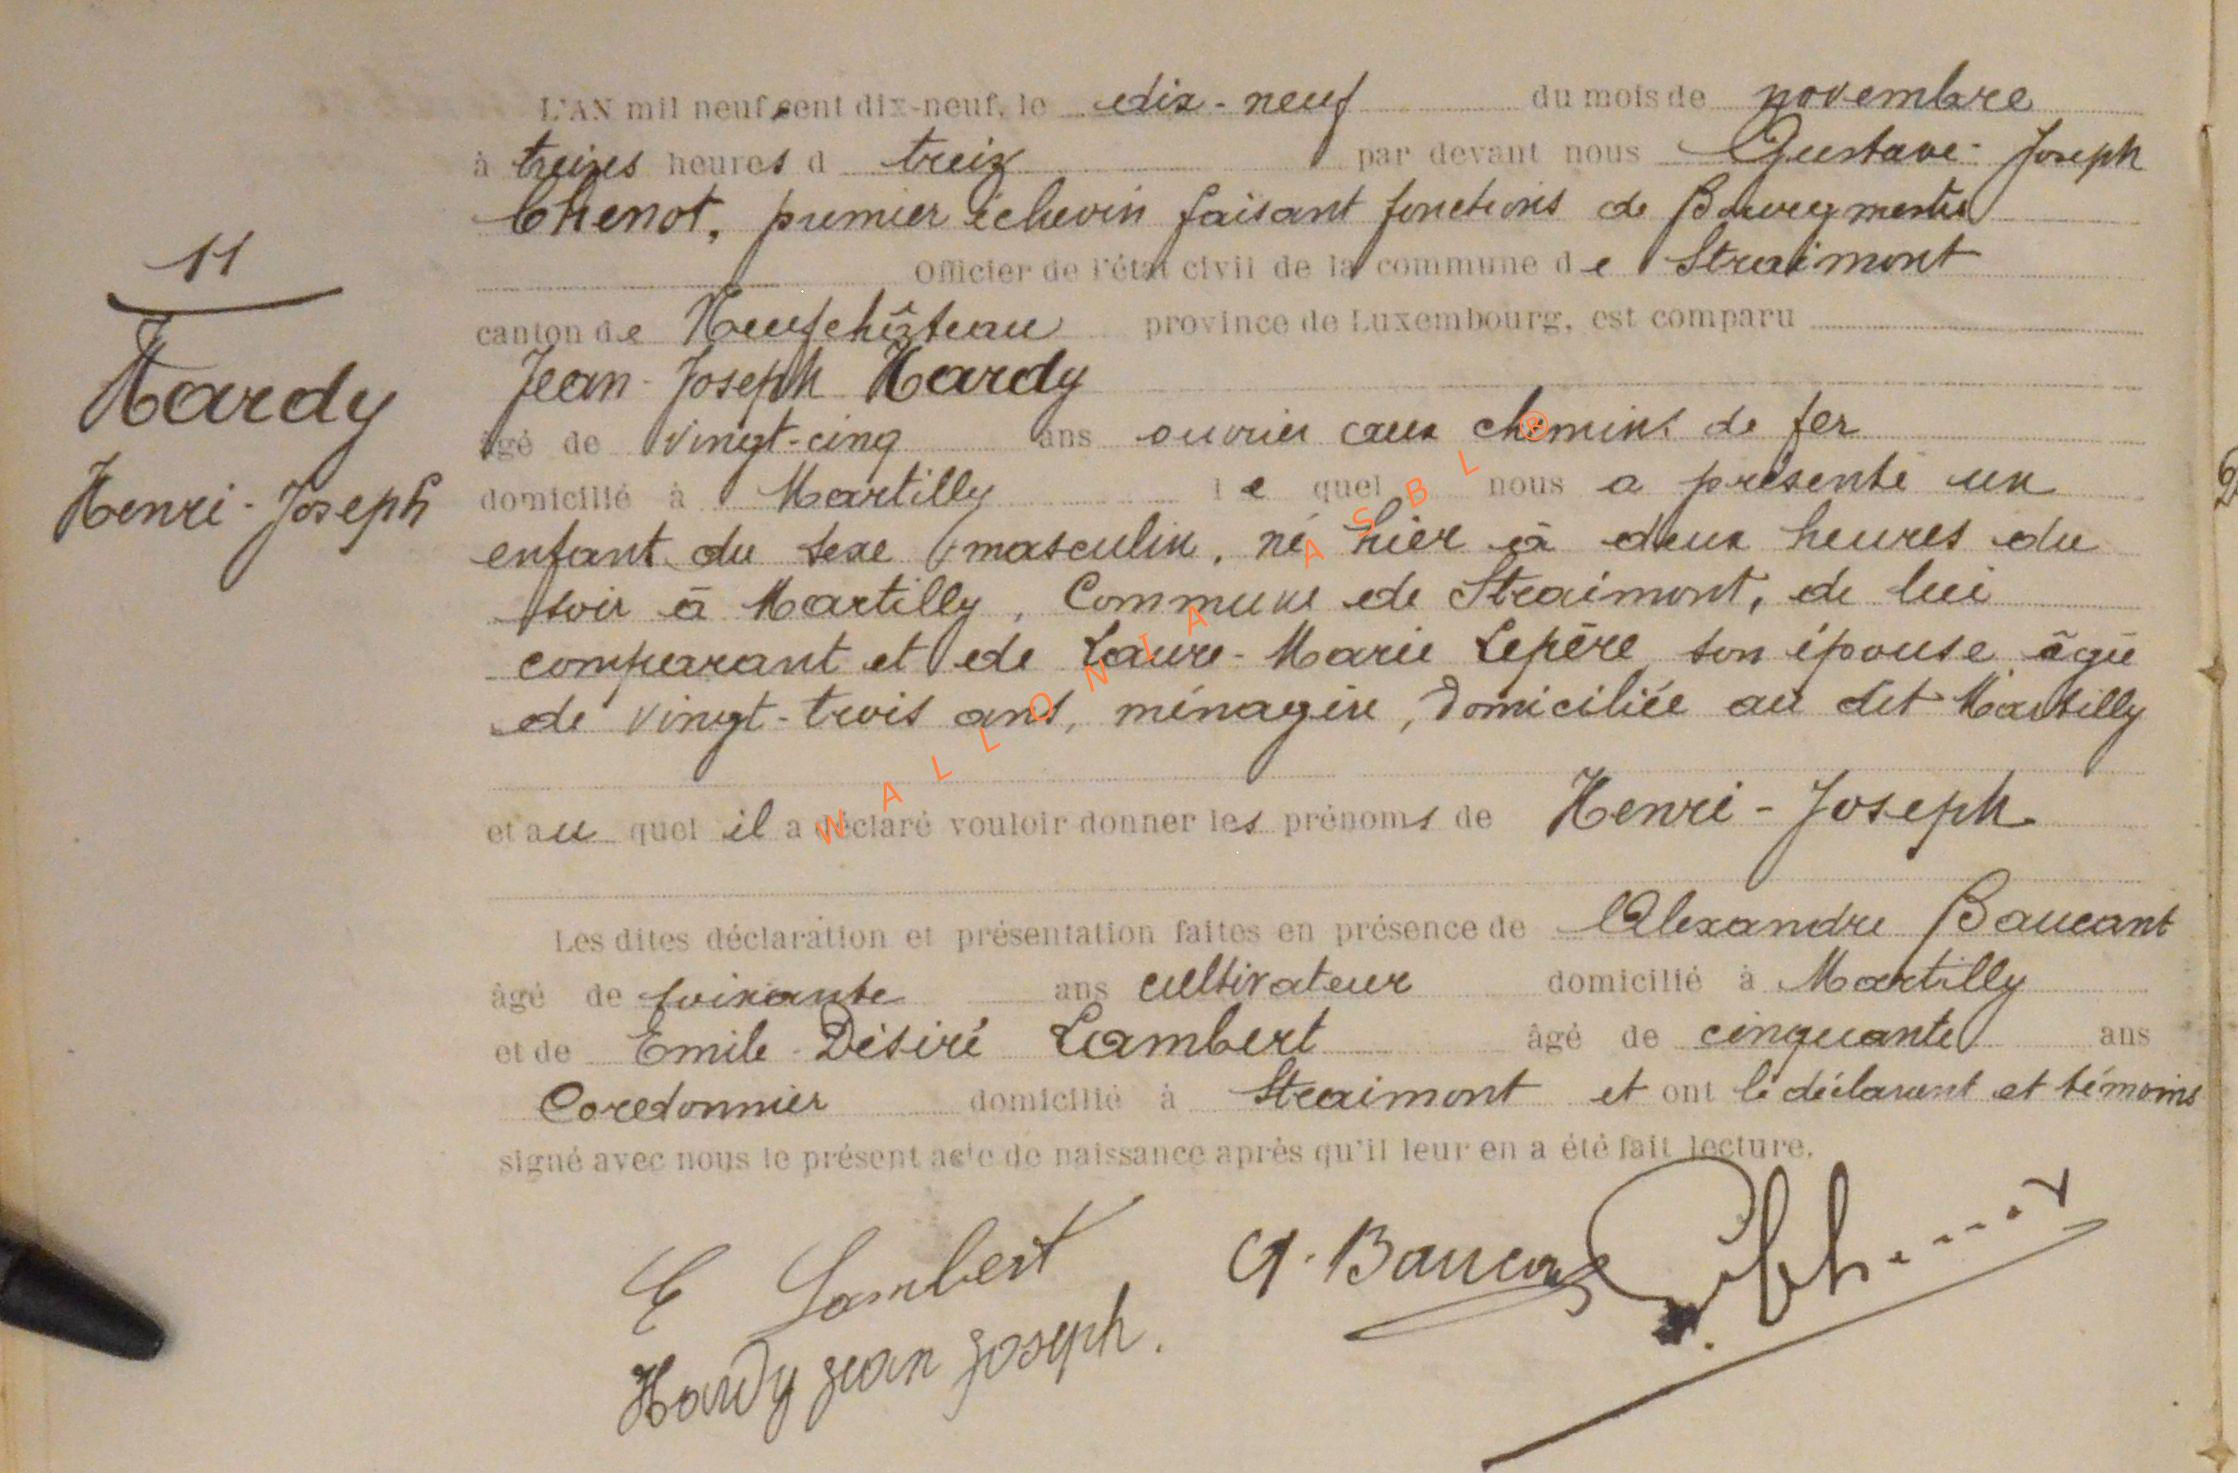 11
Hardy
Henri-Joseph
L'AN mil neuf cent dix-neuf, le dix-neuf du mois de novembre
à treizes heures d treiz par devant nous Gustave-Joseph
Chenot, premier échevin faisant fonctions de Bourgmestre
Officier de l'état civil de la commune de Straimont
canton de Neufchâteau province de Luxembourg, est comparu
Jean-Joseph Hardy
âgé de vingt-cinq ans ouvrier aux chemins de fer
domicilié à Martilly le quel nous a présenté un
enfant du sexe masculin, né hier à deux heures du
soir à Martilly, Commune de Straimont, de lui
comparant et de Laure-Marie Lepère son épouse âgée
de vingt-trois ans, ménagère, domiciliée au dit Martilly
et au quel il a déclaré vouloir donner les prénoms de Henri-Joseph
Les dites déclaration et présentation faites en présence de Alexandre Baucant
âgé de soixante ans cultivateur domicilié à Martilly
et de Emile Désiré Lambert âgé de cinquante ans
Coredonnier domicilié à Straimont et ont le déclarant et témoins
signé avec nous le présent acte de naissance après qu'il leur en a été fait lecture.
E Lambert A. Baucant
Hardy Jean Joseph.
WALLONIA ASBL ®